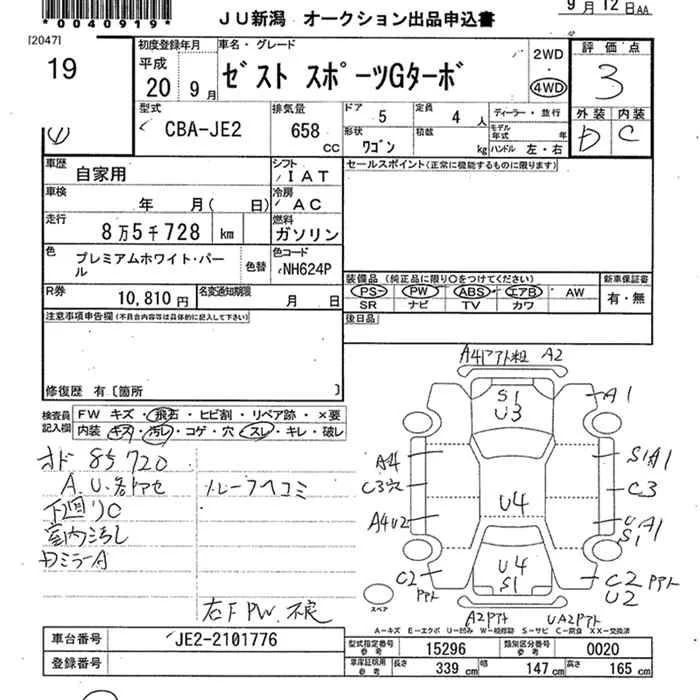 *0040919*
JU新潟 オークション出品申込書
9月12日AA
[2047]
19
初度登録年月
平成
20年9月
車名・グレード
ゼスト スポーツGターボ
2WD
・
4WD
評価点
3
外装 内装
D C
型式
CBA-JE2
排気量
658
cc
ドア
5
定員
4人
形状
ワゴン
積載
kg
ディーラー・並行
モデル年式 年
ハンドル 左・右
車歴
自家用
シフト
IAT
車検
年 月( 日)
冷房
AC
走行
8万5千728 km
燃料
ガソリン
色
プレミアムホワイト・パール
色替
色コード
NH624P
R券
10,810円
名変通知期限
月 日
セールスポイント(正常に機能するものに限ります)
装備品 (純正品に限り○をつけてください)
PS PW ABS エアB AW
SR ナビ TV カワ
新車保証書
有・無
後日品
注意事項申告欄(不具合内容等は具体的に記入して下さい)
修復歴 有〔箇所 〕
検査員記入欄
FW キズ・飛石・ヒビ割・リペア跡・×要
内装 キズ・汚レ・コゲ・穴・スレ・キレ・破レ
オド 85720
A.U.各アセ
ルーフヘコミ
下廻りC
室内汚し
DミラーA
右F PW 不良
A4 A2
S1
U3
A1
A4
S1A1
C3穴
C3
U4
A4U2
UA1
S1
U4
S1
C2
アト
C2 アト
U2
A2アト
UA2アト
スペア
A-キズ E-エクボ U-凹み W-補修跡 S-サビ C-腐食 XX-交換済
車台番号
JE2-2101776
登録番号
型式指定番号
参考
15296
類別区分番号
参考
0020
車庫証明用
参考
長さ
339 cm
幅
147 cm
高さ
165 cm